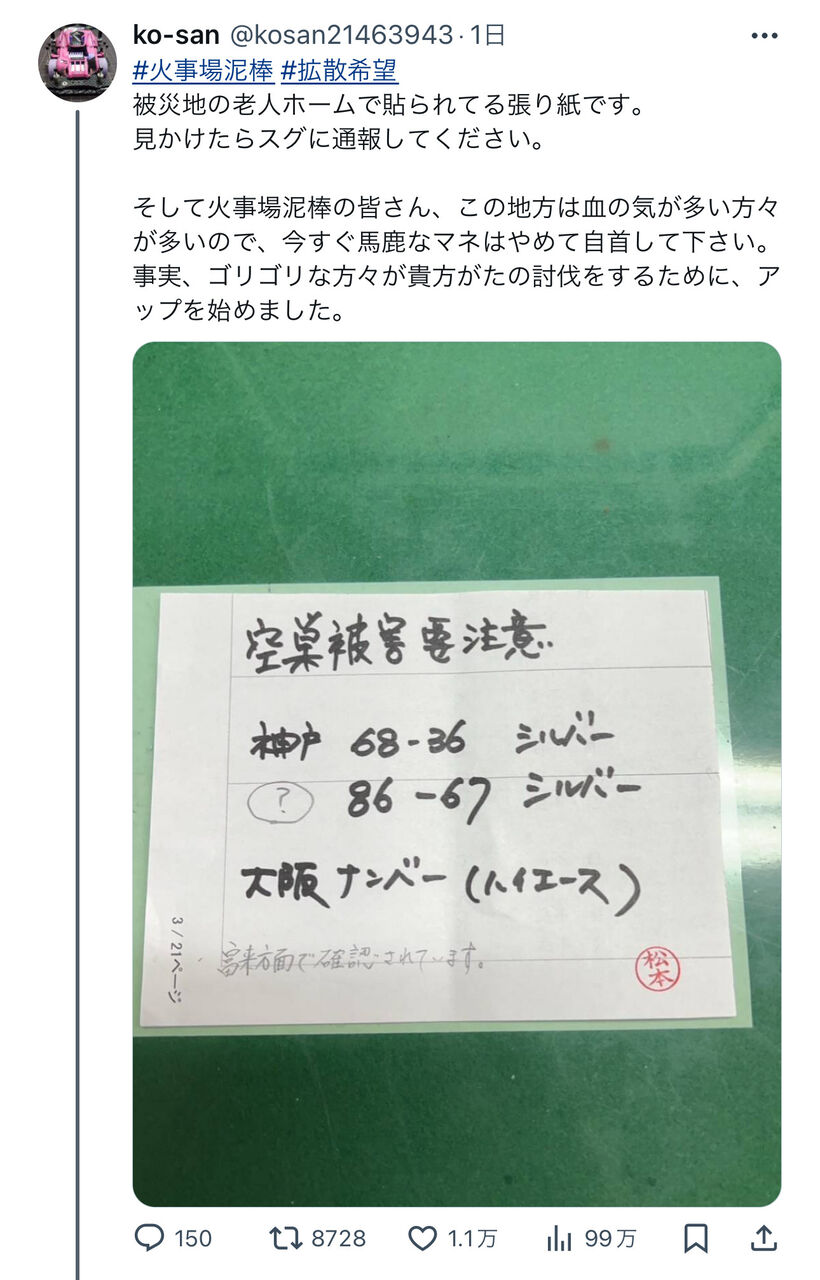 ko-san @kosan21463943·1日
#火事場泥棒 #拡散希望
被災地の老人ホームで貼られてる張り紙です。
見かけたらスグに通報してください。
そして火事場泥棒の皆さん、この地方は血の気が多い方々
が多いので、今すぐ馬鹿なマネはやめて自首して下さい。
事実、ゴリゴリな方々が貴方がたの討伐をするために、ア
ップを始めました。
空巣被害要注意
神戸 68-36 シルバー
? 86-67 シルバー
大阪ナンバー(ハイエース)
富来方面で確認されています。
松本
3/21ページ
150 8728 1.1万 99万